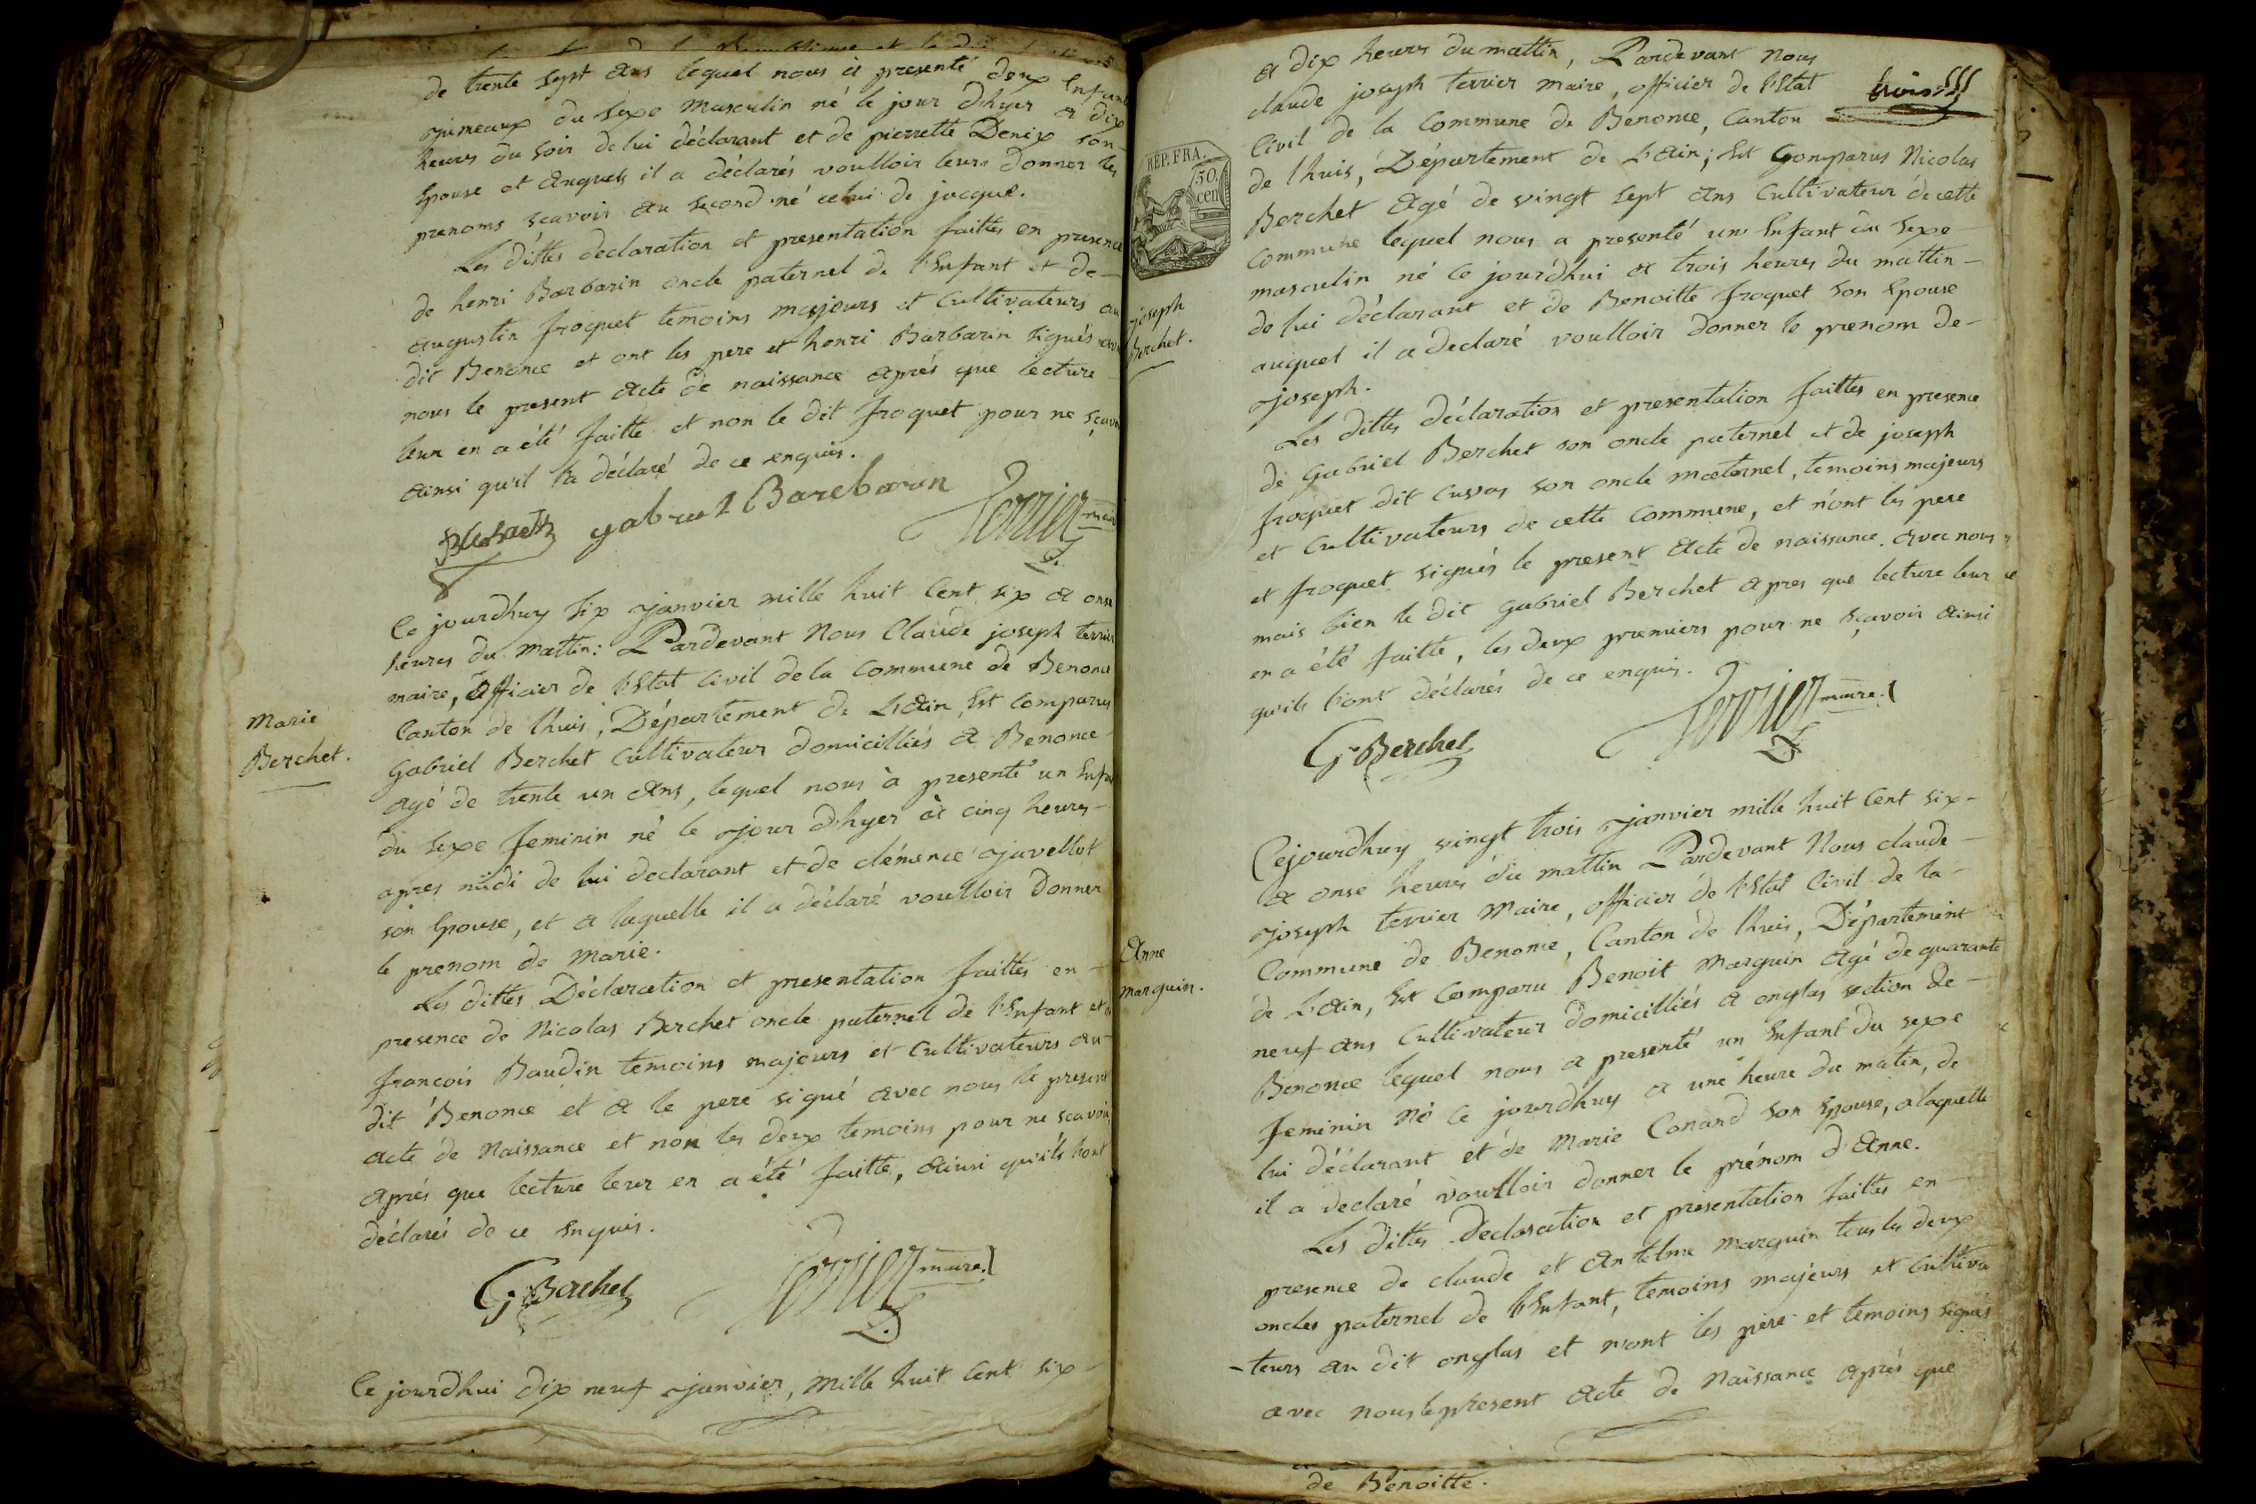 de trente sept ans lequel nous à presenté deux Enfans
jumeaux du sexe masculin né le jour d'hyer a dix
heures du soir de lui déclarant et de pierrette Denix son
Epouse et auquels il a déclarés voulloir leurs donner les
prenoms sçavoir au second né celui de jacque.
Les dittes declaration et presentation faittes en presence
de henri Barbarin oncle paternel de l'Enfant et de
augustin froquet temoins majeurs et Cultivateurs au
dit Benonce et ont les pere et henri Barbarin signés avec
nous le present acte de naissance aprés que lecture
leur en a été faitte et non le dit froquet pour ne sçavoir
ainsi qu'il l'a déclaré de ce enquis.
gabriel Barebarin Terrier maire
Marie
Berchet.
Ce jourdhuy six janvier mille huit Cent six a onse
heures du mattin: Pardevant Nous Claude joseph terrier
maire, officier de l'Etat Civil de la Commune de Benonce
Canton de lhuis, Département de L'ain, Est Comparus
Gabriel Berchet Cultivateur domicilliés a Benonce
agé de trente un ans, lequel nous à presenté un Enfant
du sexe feminin né le jour d'hyer à cinq heures
apres midi de lui declarant et de clémence javellot
son Epouse, et a laquelle il a déclaré voulloir donner
le prenom de marie.
Les dittes Déclaration et presentation faittes en
presence de Nicolas Berchet oncle paternel de l'Enfant et de
françois Baudin temoins majeurs et Cultivateurs au
dit Benonce et a le pere signé avec nous le present
acte de Naissance et non les deux temoins pour ne scavoir
aprés que lecture leur en a été faitte, ainsi qu'ils l'ont
déclarés de ce Enquis.
G Berchet Terrier maire
Ce jourdhui dix neuf janvier, mille huit Cent six
a dix heures du mattin, Pardevant Nous
claude joseph terrier maire, officier de l'Etat
Civil de la Commune de Benonce, Canton
trois
de lhuis, Département de L'ain; Est Comparus Nicolas
Berchet agé de vingt sept ans Cultivateur de cette
Commune lequel nous a presenté un Enfant du sexe
masculin né ce jourdhui a trois heures du mattin
de lui déclarant et de Benoitte froquet son Epouse
auquel il a declaré voulloir donner le prenom de
joseph.
REP. FRA.
50 cen
joseph
Berchet.
Les dittes déclaration et presentation faittes en presence
de gabriel Berchet son oncle paternel et de joseph
froquet dit cuvas son oncle maternel, temoins majeurs
et Cultivateurs de cette Commune, et n'ont les pere
et froquet signés le present acte de naissance avec nous
mais bien le dit gabriel Berchet apres que lecture leur
en a été faitte, les deux premiers pour ne sçavoir ainsi
qu'ils l'ont déclarés de ce enquis.
G Berchet Terrier maire
Cejourdhuy vingt trois janvier mille huit Cent six
a onse heures du mattin Pardevant Nous claude
joseph terrier Maire, officier de l'Etat Civil de la
Commune de Benonce, Canton de lhuis, Département
de L'ain, Est Comparu Benoit Marguin agé de quarante
neuf ans Cultivateur domicilliés a onglas section de
Benonce lequel nous a presenté un Enfant du sexe
feminin Né ce jourdhuy a une heure du matin, de
lui déclarant et de Marie Conand son Epouse, a laquelle
il a declaré voulloir donner le prénom d'Anne.
Anne
marguin.
Les dittes Déclaration et presentation faittes en
presence de claude et Antelme Marguin tous les deux
oncles paternel de l'Enfant, temoins majeurs et Cultiva
-teurs au dit onglas et n'ont les pere et temoins signés
avec nous le present acte de Naissance aprés que
de Benoitte.